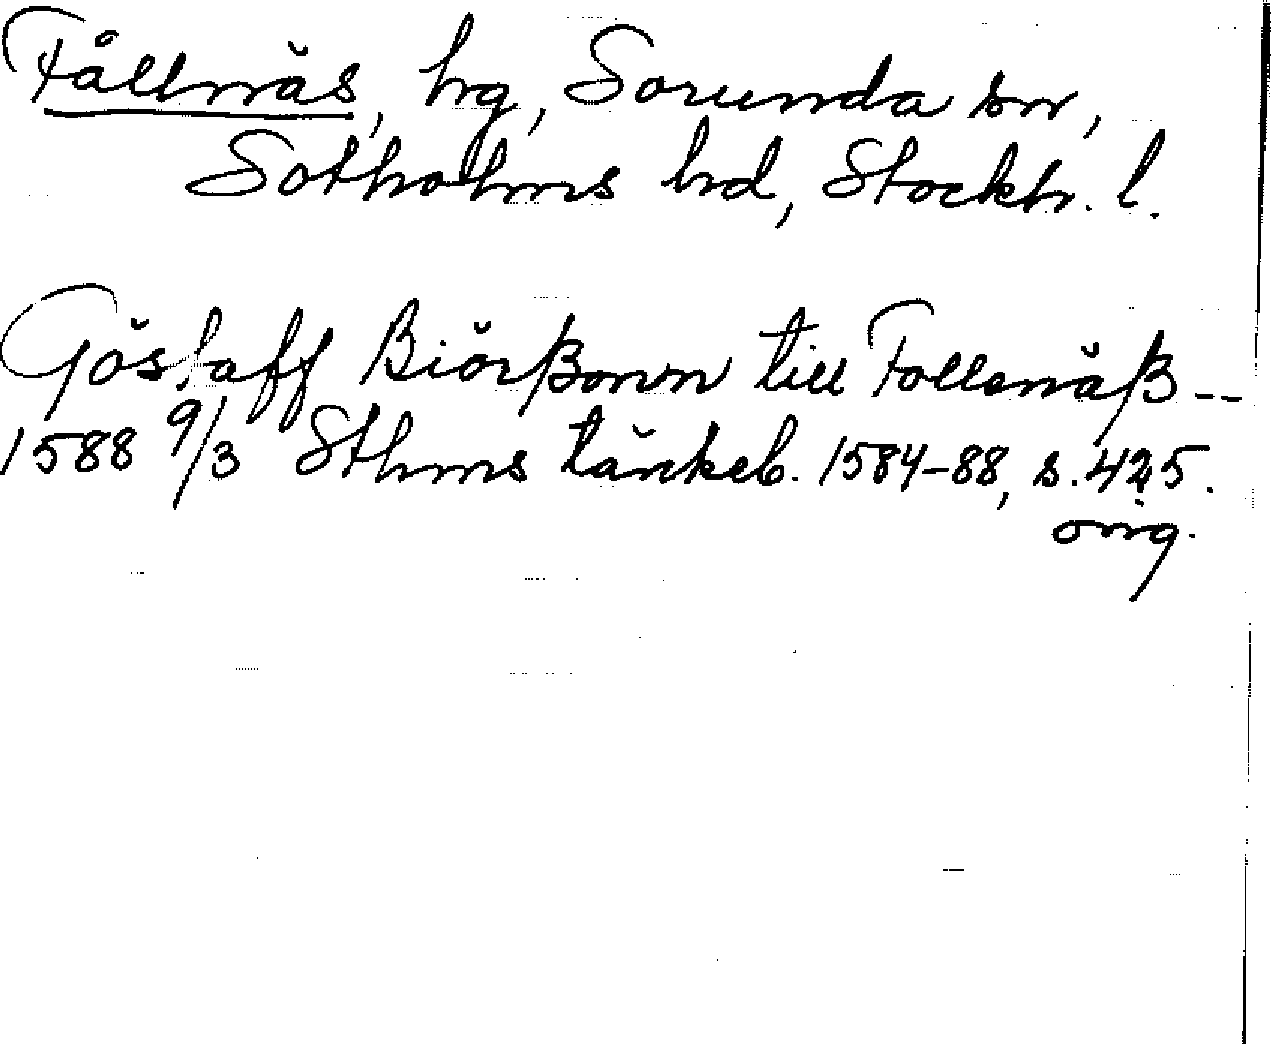 Fållnäs, hg, Sorunda sn,
Sotholms hd, Stockh. l.
Göstaff Biörßonn till Follenäß --
1588 9/3 Sthms tänkeb. 1584-88, s. 425.
orig.